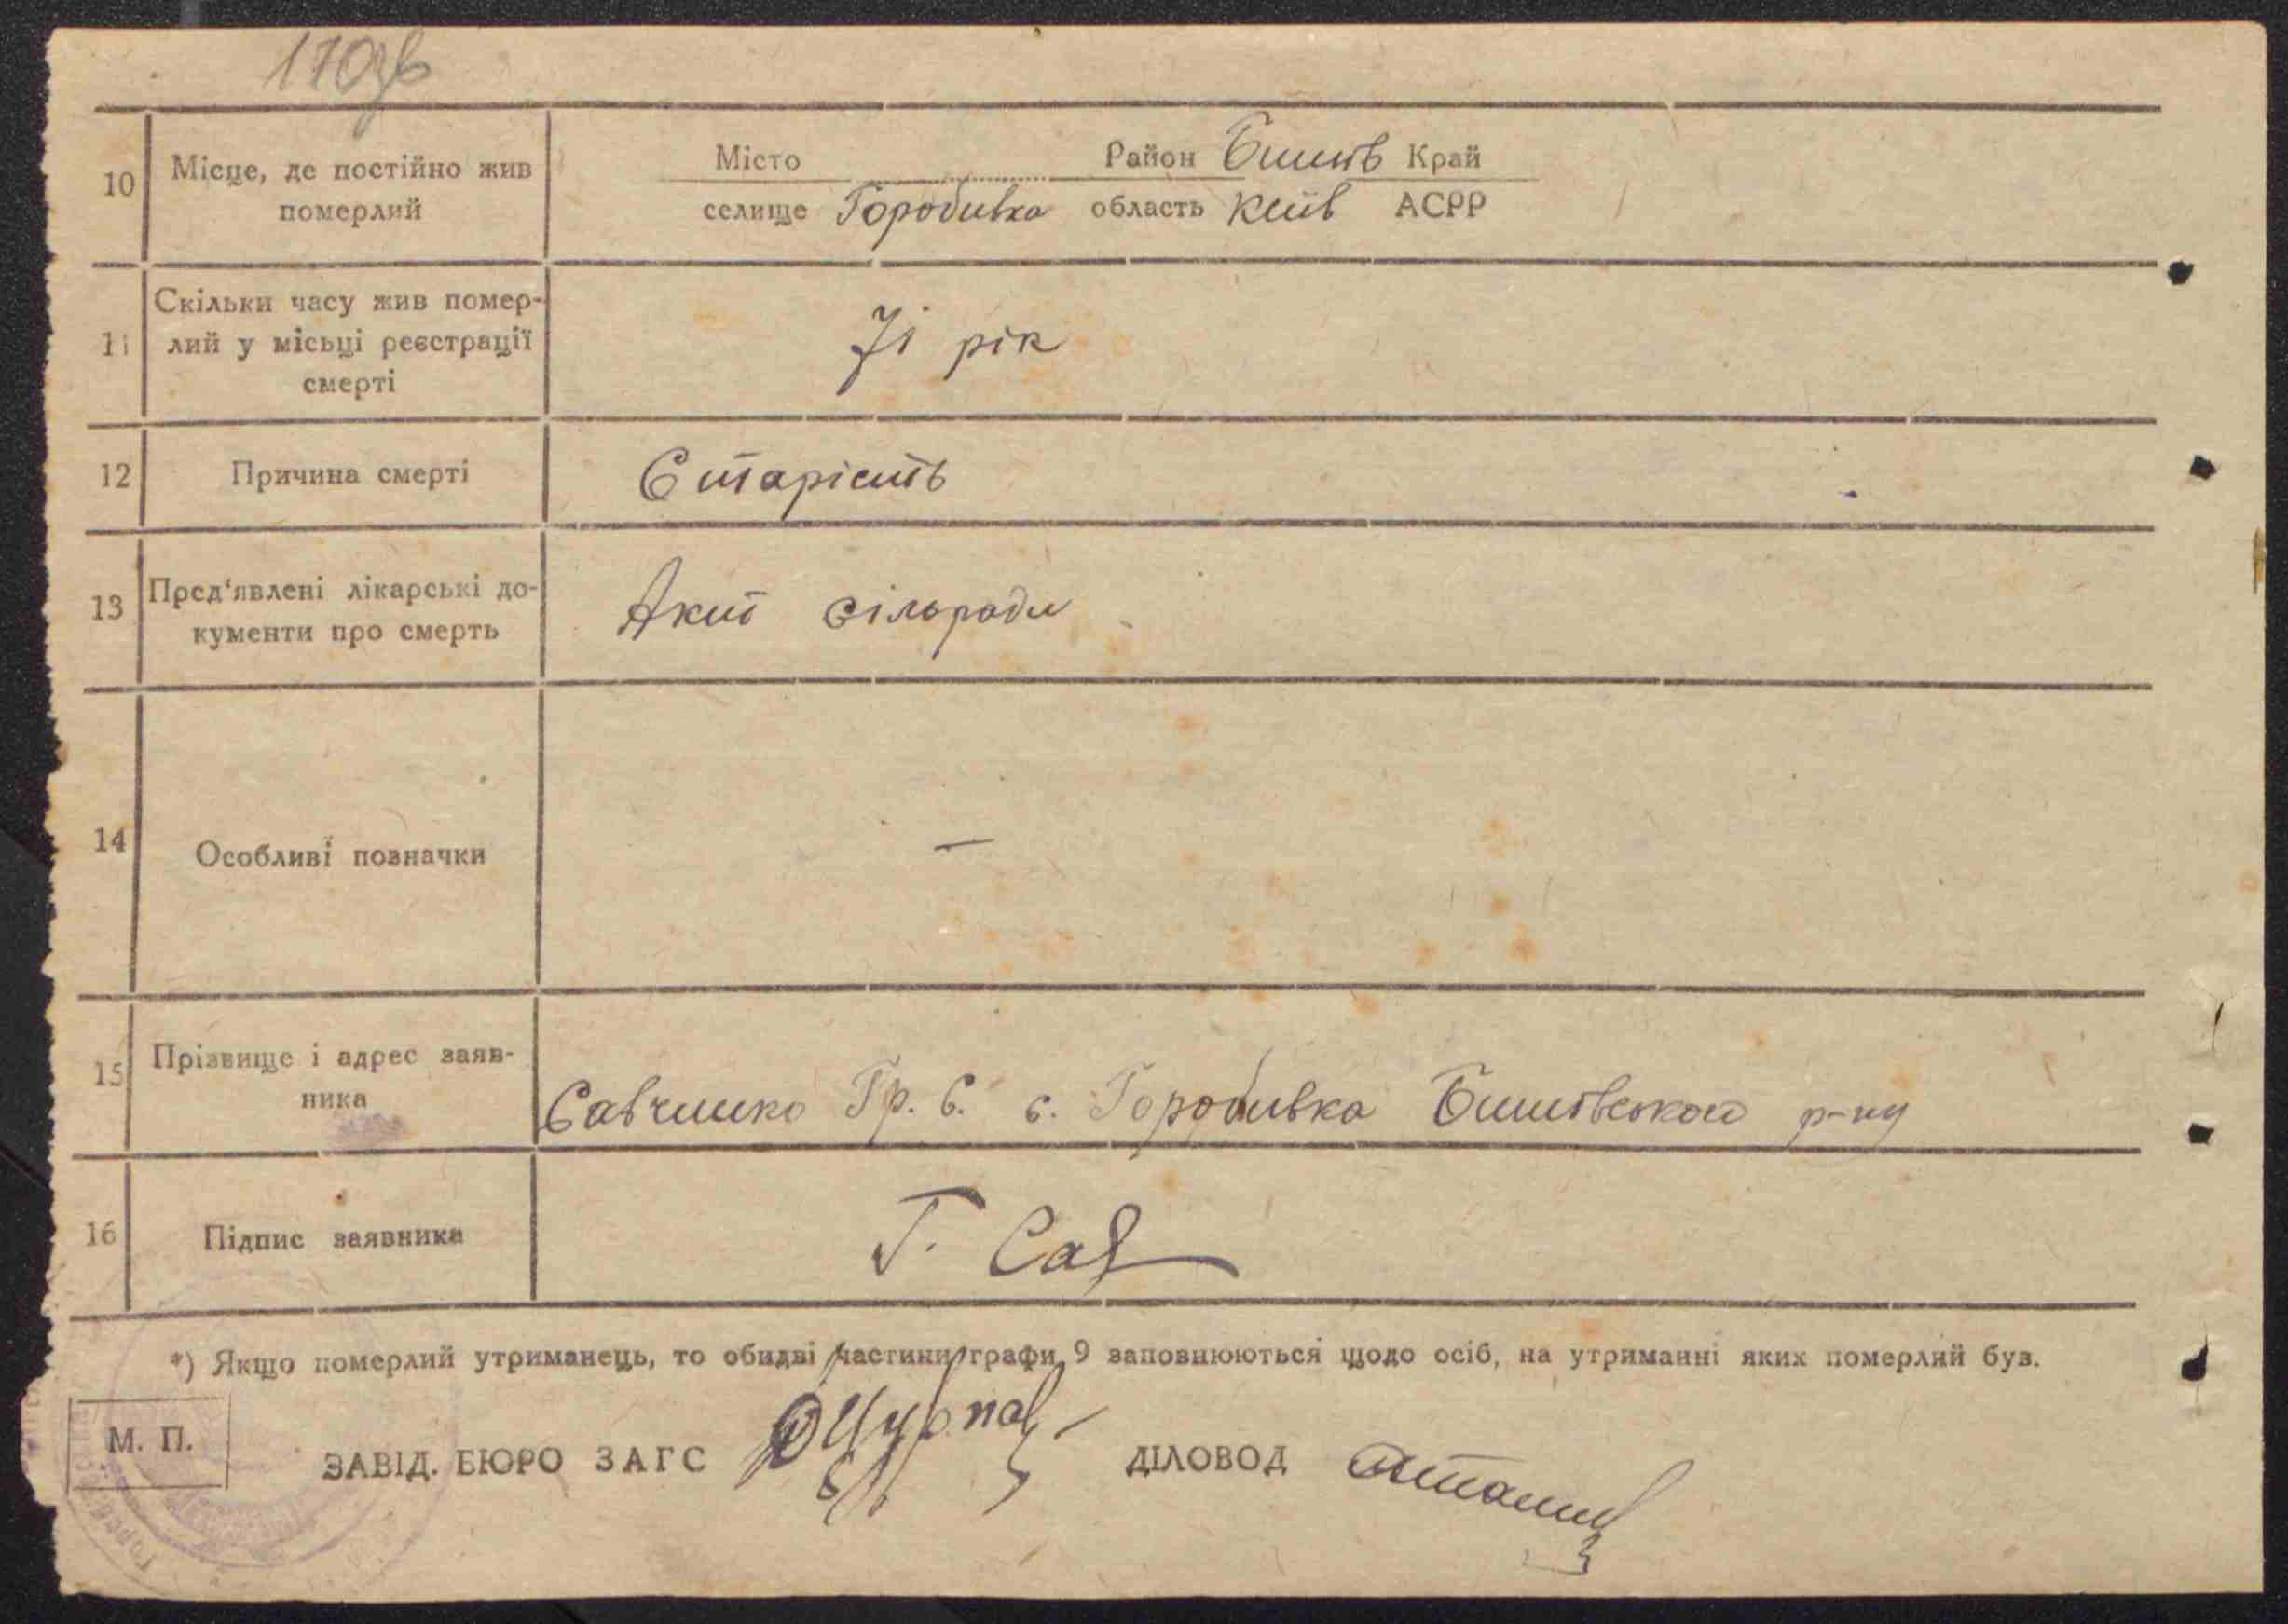 170зв
10 Місце, де постійно жив померлий
Місто Район Бишів Край
селище Горобивка область Київ АСРР
11 Скільки часу жив помер-
лий у місьці реєстрації
смерті
71 рік
12 Причина смерті Старість
13 Пред'явлені лікарські до-
кументи про смерть
Акт сільради
14 Особливі позначки —
15 Прізвище і адрес заяв-
ника
Савченко Гр. С. с. Горобивка Бишівського р-ну
16 Підпис заявника Г. Сав
*) Якщо померлий утриманець, то обидві частини графи 9 заповнюються щодо осіб, на утриманні яких померлий був.
М. П.
ЗАВІД. БЮРО ЗАГС ДІЛОВОД